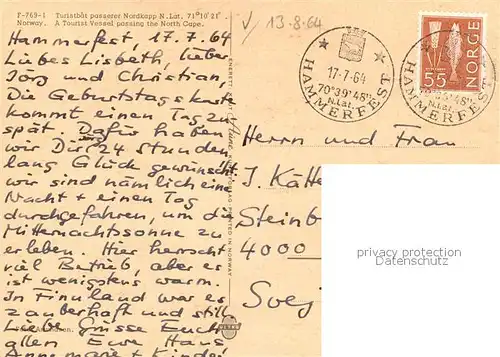 F-763-1 Turistbåt passerer Nordkapp N. Lat. 71°10'21".
Norway. A Tourist Vessel passing the North Cape.
√ 13-8-64
Hammerfest, 17.7.64
Liebes Lisbeth, lieber
Jörg und Christian,
Die Geburtstagskarte
kommt einen Tag zu
spät. Dafür haben
wir Dir 24 Stunden
lang Glück gewünscht
wir sind nämlich eine
Nacht + einen Tag
durchgefahren, um die
Mitternachtssonne zu
erleben. Hier herrscht
viel Betrieb, aber es
ist wenigstens warm.
In Finnland war es
zauberhaft und still
Liebe Grüsse Euch
allen Eure Hans
Annemarie + Kinder
PRINTED IN NORWAY
HAMMERFEST
17-7-64
70°39'48"
N.Lat.
HAMMERFEST
39'48"
N.Lat.
NORGE
55
Herrn und Frau
J. Kätte
Steinb
4000
privacy protection
www.oldthing.com